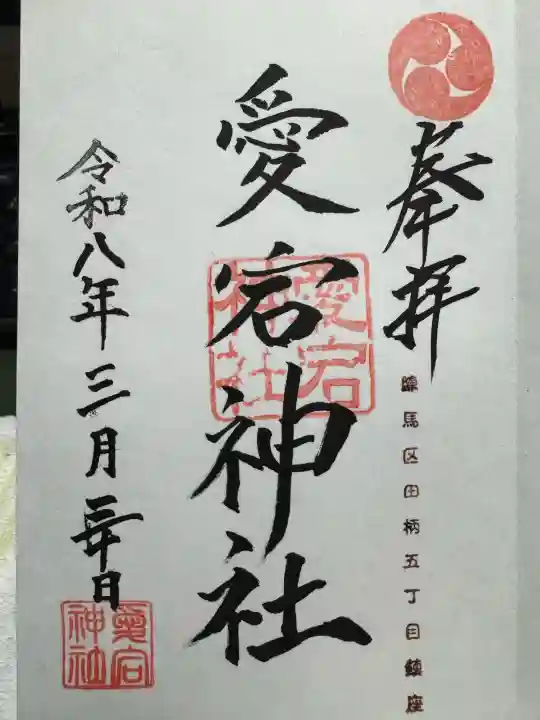 奉拝
練馬区田柄五丁目鎮座
愛宕神社
愛宕
神社
令和八年三月三十日
愛宕
神社